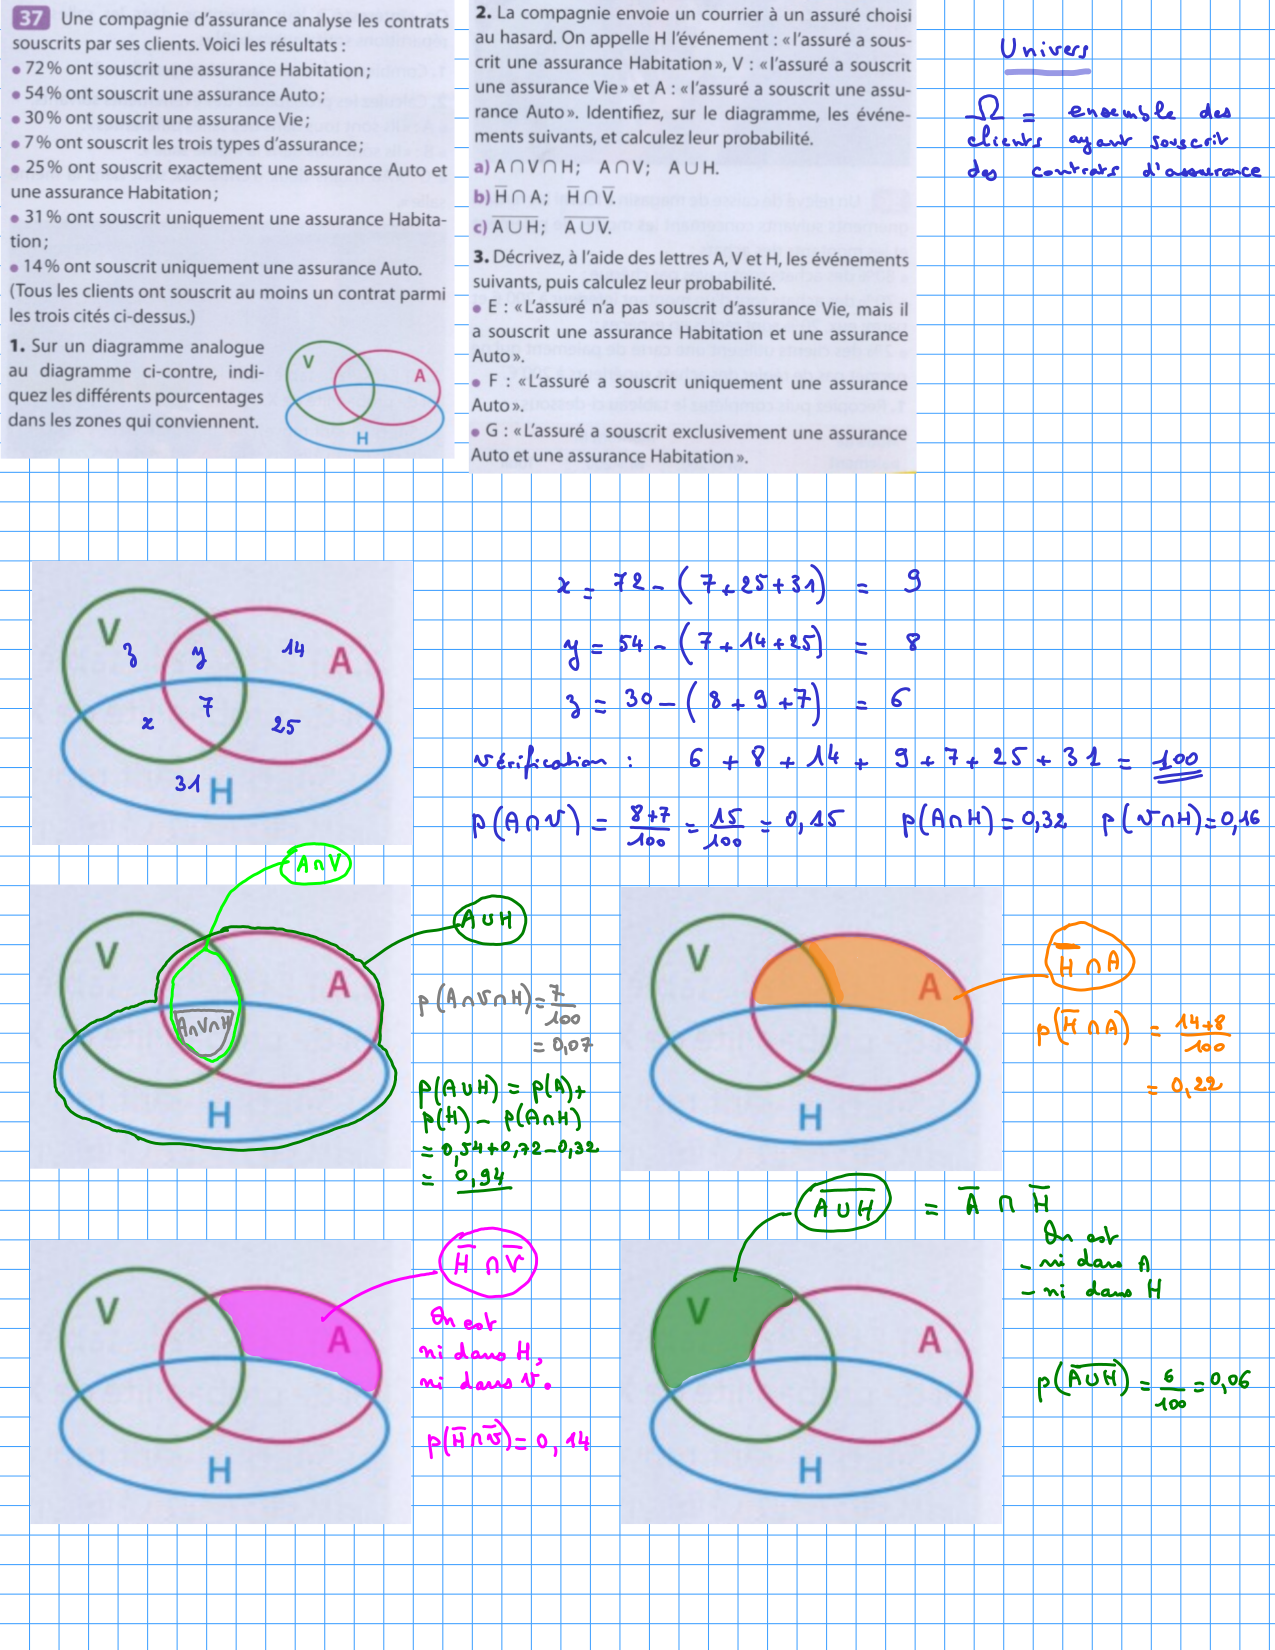 37 Une compagnie d'assurance analyse les contrats
souscrits par ses clients. Voici les résultats :
• 72% ont souscrit une assurance Habitation ;
• 54% ont souscrit une assurance Auto ;
• 30% ont souscrit une assurance Vie ;
• 7% ont souscrit les trois types d'assurance ;
• 25% ont souscrit exactement une assurance Auto et
une assurance Habitation ;
• 31% ont souscrit uniquement une assurance Habita-
tion ;
• 14% ont souscrit uniquement une assurance Auto.
(Tous les clients ont souscrit au moins un contrat parmi
les trois cités ci-dessus.)
1. Sur un diagramme analogue
au diagramme ci-contre, indi-
quez les différents pourcentages
dans les zones qui conviennent.
V
A
H
2. La compagnie envoie un courrier à un assuré choisi
au hasard. On appelle H l'événement : «l'assuré a sous-
crit une assurance Habitation», V : «l'assuré a souscrit
une assurance Vie» et A : «l'assuré a souscrit une assu-
rance Auto». Identifiez, sur le diagramme, les événe-
ments suivants, et calculez leur probabilité.
a) A∩V∩H; A∩V; A∪H.
b) H̅∩A; H̅∩V̅.
c) A̅∪̅H̅; A̅∪̅V̅.
3. Décrivez, à l'aide des lettres A, V et H, les événements
suivants, puis calculez leur probabilité.
• E : «L'assuré n'a pas souscrit d'assurance Vie, mais il
a souscrit une assurance Habitation et une assurance
Auto».
• F : «L'assuré a souscrit uniquement une assurance
Auto».
• G : «L'assuré a souscrit exclusivement une assurance
Auto et une assurance Habitation».
Univers
Ω = ensemble des
clients ayant souscrit
des contrats d'assurance
V
z
y
14
A
x
7
25
31
H
x = 72 - (7+25+31) = 9
y = 54 - (7+14+25) = 8
z = 30 - (8+9+7) = 6
Vérification : 6 + 8 + 14 + 9 + 7 + 25 + 31 = 100
p(A∩V) = 8+7/100 = 15/100 = 0,15 p(A∩H) = 0,32 p(V∩H) = 0,16
A∩V
A∪H
V
A
A∩V∩H
H
p(A∩V∩H) = 7/100
= 0,07
p(A∪H) = p(A)+
p(H) - p(A∩H)
= 0,54+0,72-0,32
= 0,94
V
A
H
H̅ ∩ A
p(H̅ ∩ A) = 14+8/100
= 0,22
V
A
H
H̅ ∩ V̅
On est
ni dans H,
ni dans V.
p(H̅∩V̅) = 0,14
A̅∪̅H̅ = A̅ ∩ H̅
On est
- ni dans A
- ni dans H
V
A
H
p(A̅∪̅H̅) = 6/100 = 0,06